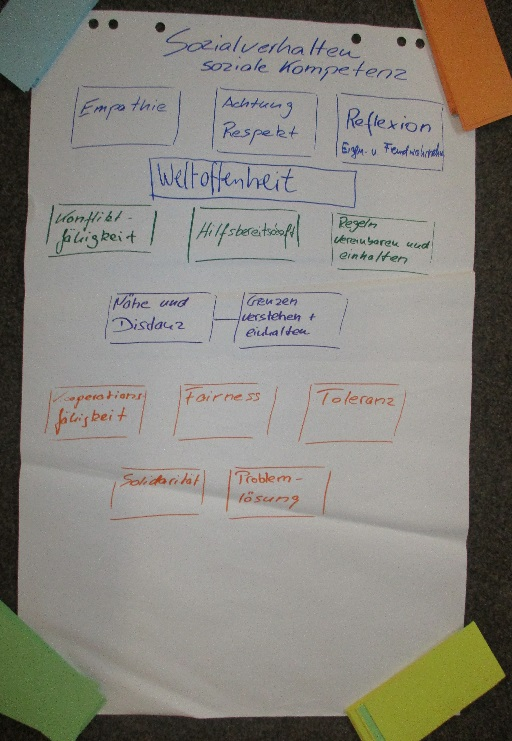 Sozialverhalten
soziale Kompetenz
Empathie
Achtung
Respekt
Reflexion
Eigen- u Fremdwahrnehm
Weltoffenheit
Konflikt-
fähigkeit
Hilfsbereitschaft
Regeln
vereinbaren und
einhalten
Nähe und
Distanz
Grenzen
verstehen +
einhalten
Kooperations
fähigkeit
Fairness
Toleranz
Solidarität
Problem-
lösung